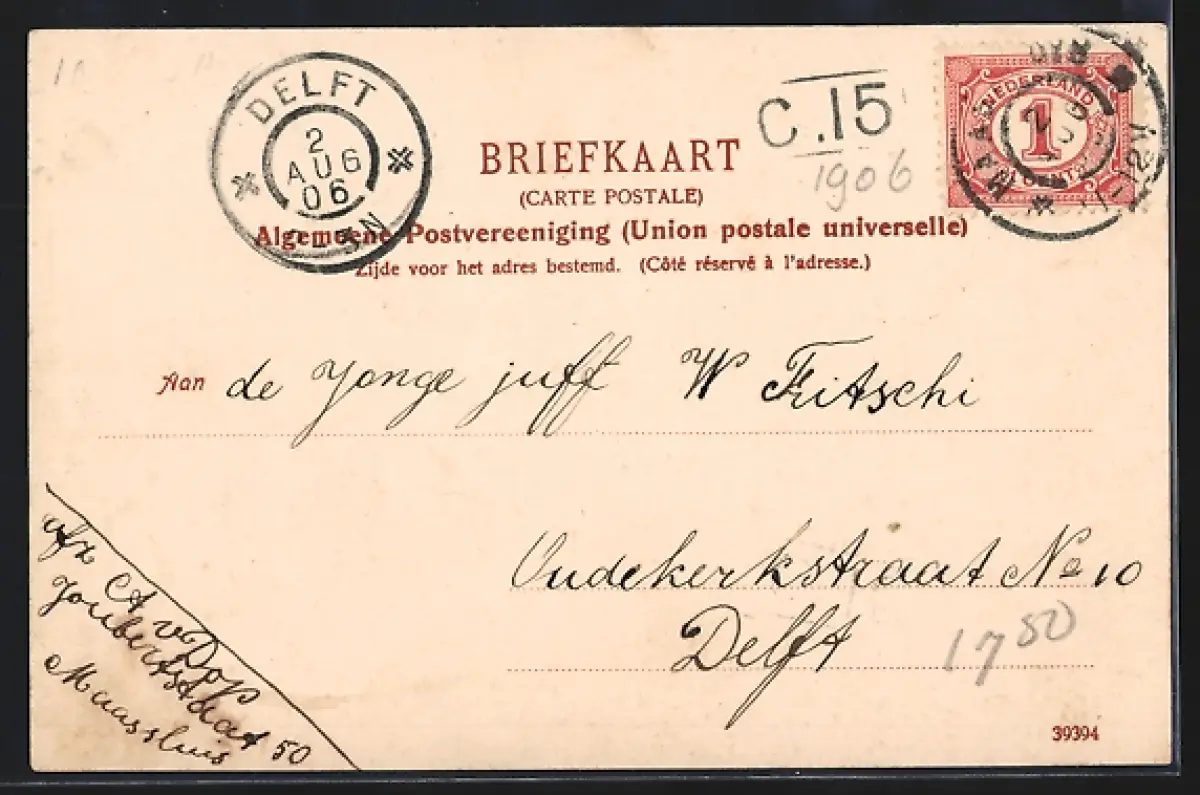 DELFT
2
AUG
06
C.15
1906
NEDERLAND
1
CENT
BRIEFKAART
(CARTE POSTALE)
Algemeene Postvereeniging (Union postale universelle)
Zijde voor het adres bestemd. (Côté réservé à l'adresse.)
Aan de Jonge juff W Fritschi
Oudekerkstraat No 10
Delft
1750
Afz C A v Dop
Joubertstraat 50
Maassluis
39394